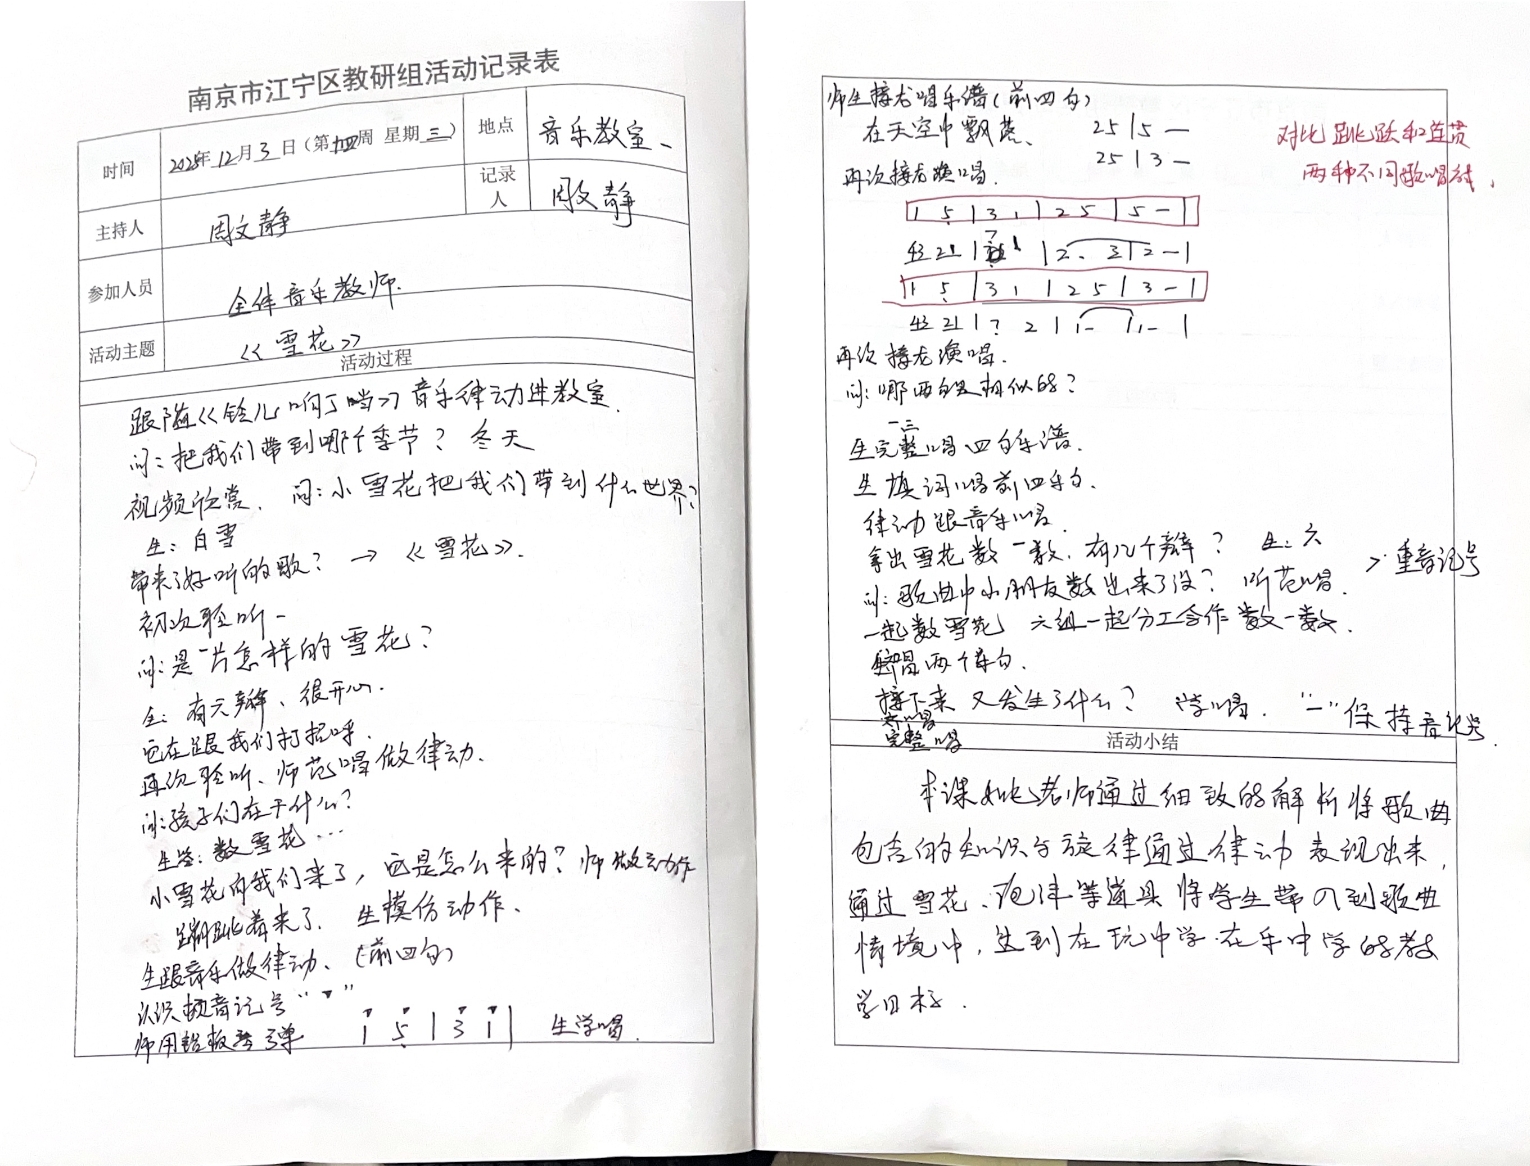 南京市江宁区教研组活动记录表
时间 2025年12月3日(第十四周 星期三) 地点 音乐教室一
主持人 周文静 记录人 周文静
参加人员 全体音乐教师.
活动主题 《雪花》
活动过程
跟随《铃儿响丁当》音乐律动进教室.
问:把我们带到哪个季节? 冬天
视频欣赏. 问:小雪花把我们带到什么世界?
生:白雪
带来了好听的歌? → 《雪花》.
初次聆听一
问:是一片怎样的雪花?
生:有六瓣、很开心.
它在跟我们打招呼.
再次聆听、师范唱做律动.
问:孩子们在干什么?
生答:数雪花…
小雪花向我们来了,它是怎么来的?师做动作
蹦跳着来了. 生模仿动作.
生跟音乐做律动、(前四句)
认识顿音记号"▼"
师用铝板琴弹 1 5 | 3 1 | 生学唱.
师生接龙唱乐谱(前四句)
在天空中飘荡、 25 | 5 —
25 | 3 —
再次接龙演唱.
对比跳跃和连贯
两种不同歌唱
1 5 | 3 1 | 2 5 | 5 - |
43 21 | | 2. 3 | 2 - |
1 5 | 3 1 | 2 5 | 3 - |
43 21 | 7 2 | 1 - | 1 - |
再次接龙演唱.
问:哪两句是相似的?
一三
生完整唱四句乐谱.
生填词唱前四乐句.
律动跟音乐唱.
拿出雪花数一数.有几个瓣? 生:六
问:歌曲中小朋友数出来了没? 听范唱. > 重音记号
一起数雪花 六组一起分工合作数一数.
学唱两个乐句.
接下来又发生了什么? 学唱. "—"保持音记号.
完整唱
活动小结
本课 老师通过细致的解析将歌曲
包含的知识与旋律通过律动表现出来,
通过雪花、 等道具将学生带入到歌曲
情境中,达到在玩中学.在乐中学的教
学目标.